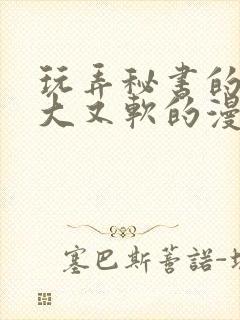 玩弄秘书的
大又軟的漫
塞巴斯蒈諾-